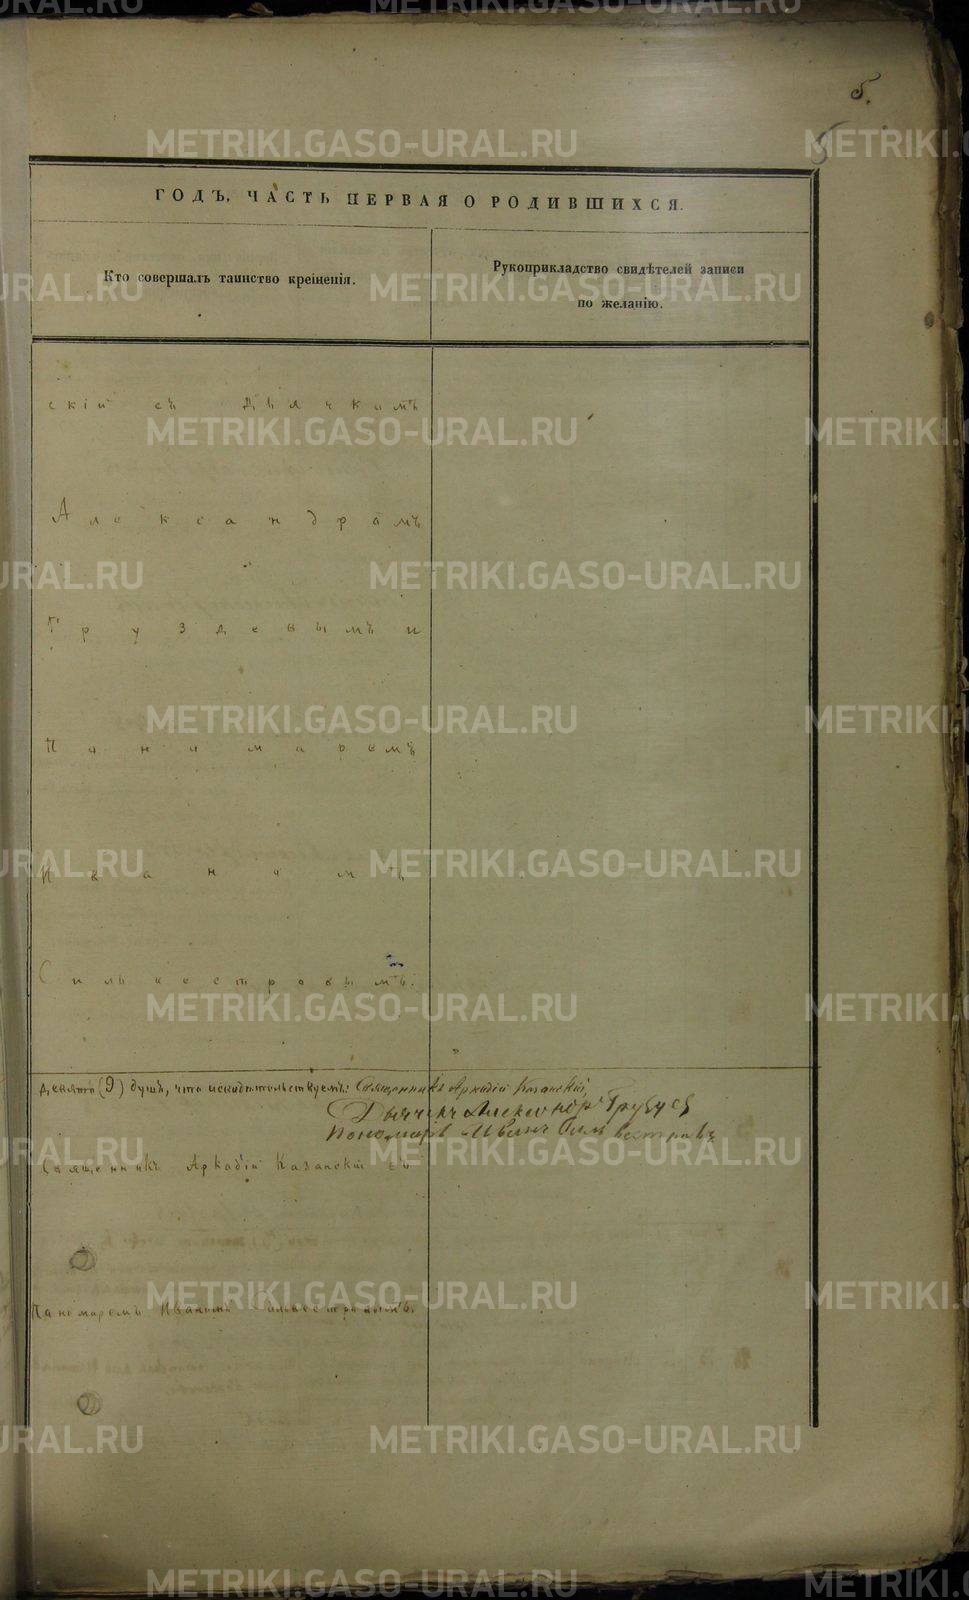 5.
5
ГОДЪ, ЧАСТЬ ПЕРВАЯ О РОДИВШИХСЯ.
Кто совершалъ таинство крещенія.
Рукоприкладство свидѣтелей записи
по желанію.
скій съ Дьячкомъ
Александромъ
Груздевымъ и
Паномаремъ
Иваномъ
Сильвестровымъ.
девять (9) душъ, что и свидѣтельствуемъ: Священникъ Аркадій Казанскій,
Дьячекъ Александръ Груздев
Пономарь Иванъ Сильвестровъ
Священникъ Аркадій Казанскій съ
Паномаремъ Иваномъ Сильвестровымъ.
METRIKI.GASO-URAL.RU